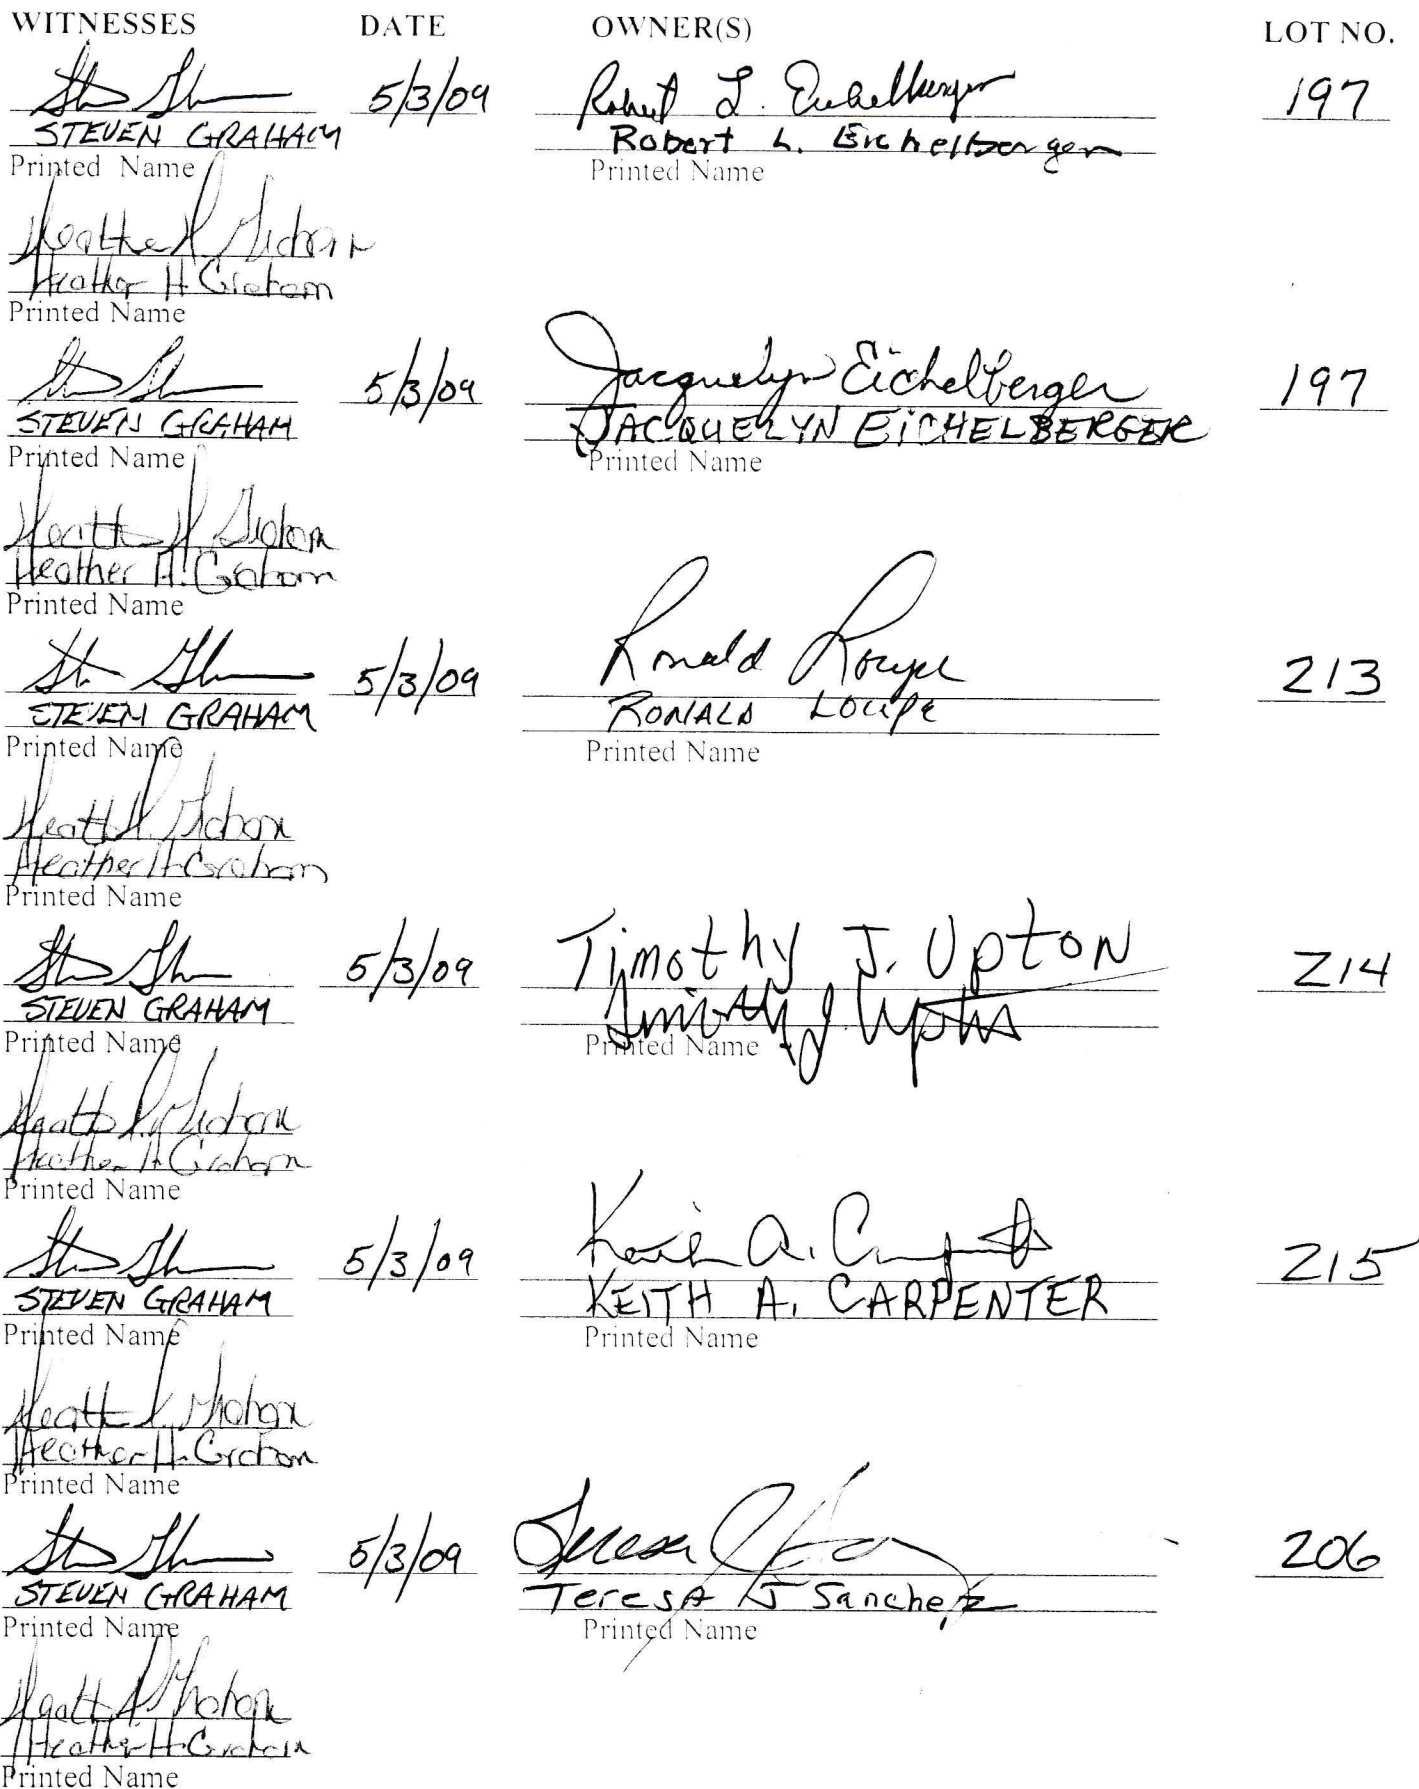 WITNESSES DATE OWNER(S) LOT NO.
5/3/09 Robert L. Eichelberger 197
STEVEN GRAHAM Robert L. Eichelberger
Printed Name Printed Name
Heather H Graham
Heather H Graham
Printed Name
5/3/09 Jacquelyn Eichelberger 197
STEVEN GRAHAM JACQUELYN EICHELBERGER
Printed Name Printed Name
Heather H Graham
Heather H. Graham
Printed Name
5/3/09 Ronald Loupe 213
STEVEN GRAHAM RONALD LOUPE
Printed Name Printed Name
Heather H. Graham
Heather H Graham
Printed Name
5/3/09 Timothy J. Upton 214
STEVEN GRAHAM Timothy J Upton
Printed Name Printed Name
Heather H Graham
Heather H Graham
Printed Name
5/3/09 Keith A. Carpenter 215
STEVEN GRAHAM KEITH A. CARPENTER
Printed Name Printed Name
Heather H Graham
Heather H. Graham
Printed Name
5/3/09 Teresa J 206
STEVEN GRAHAM Teresa J Sanchez
Printed Name Printed Name
Heather H Graham
Heather H Graham
Printed Name